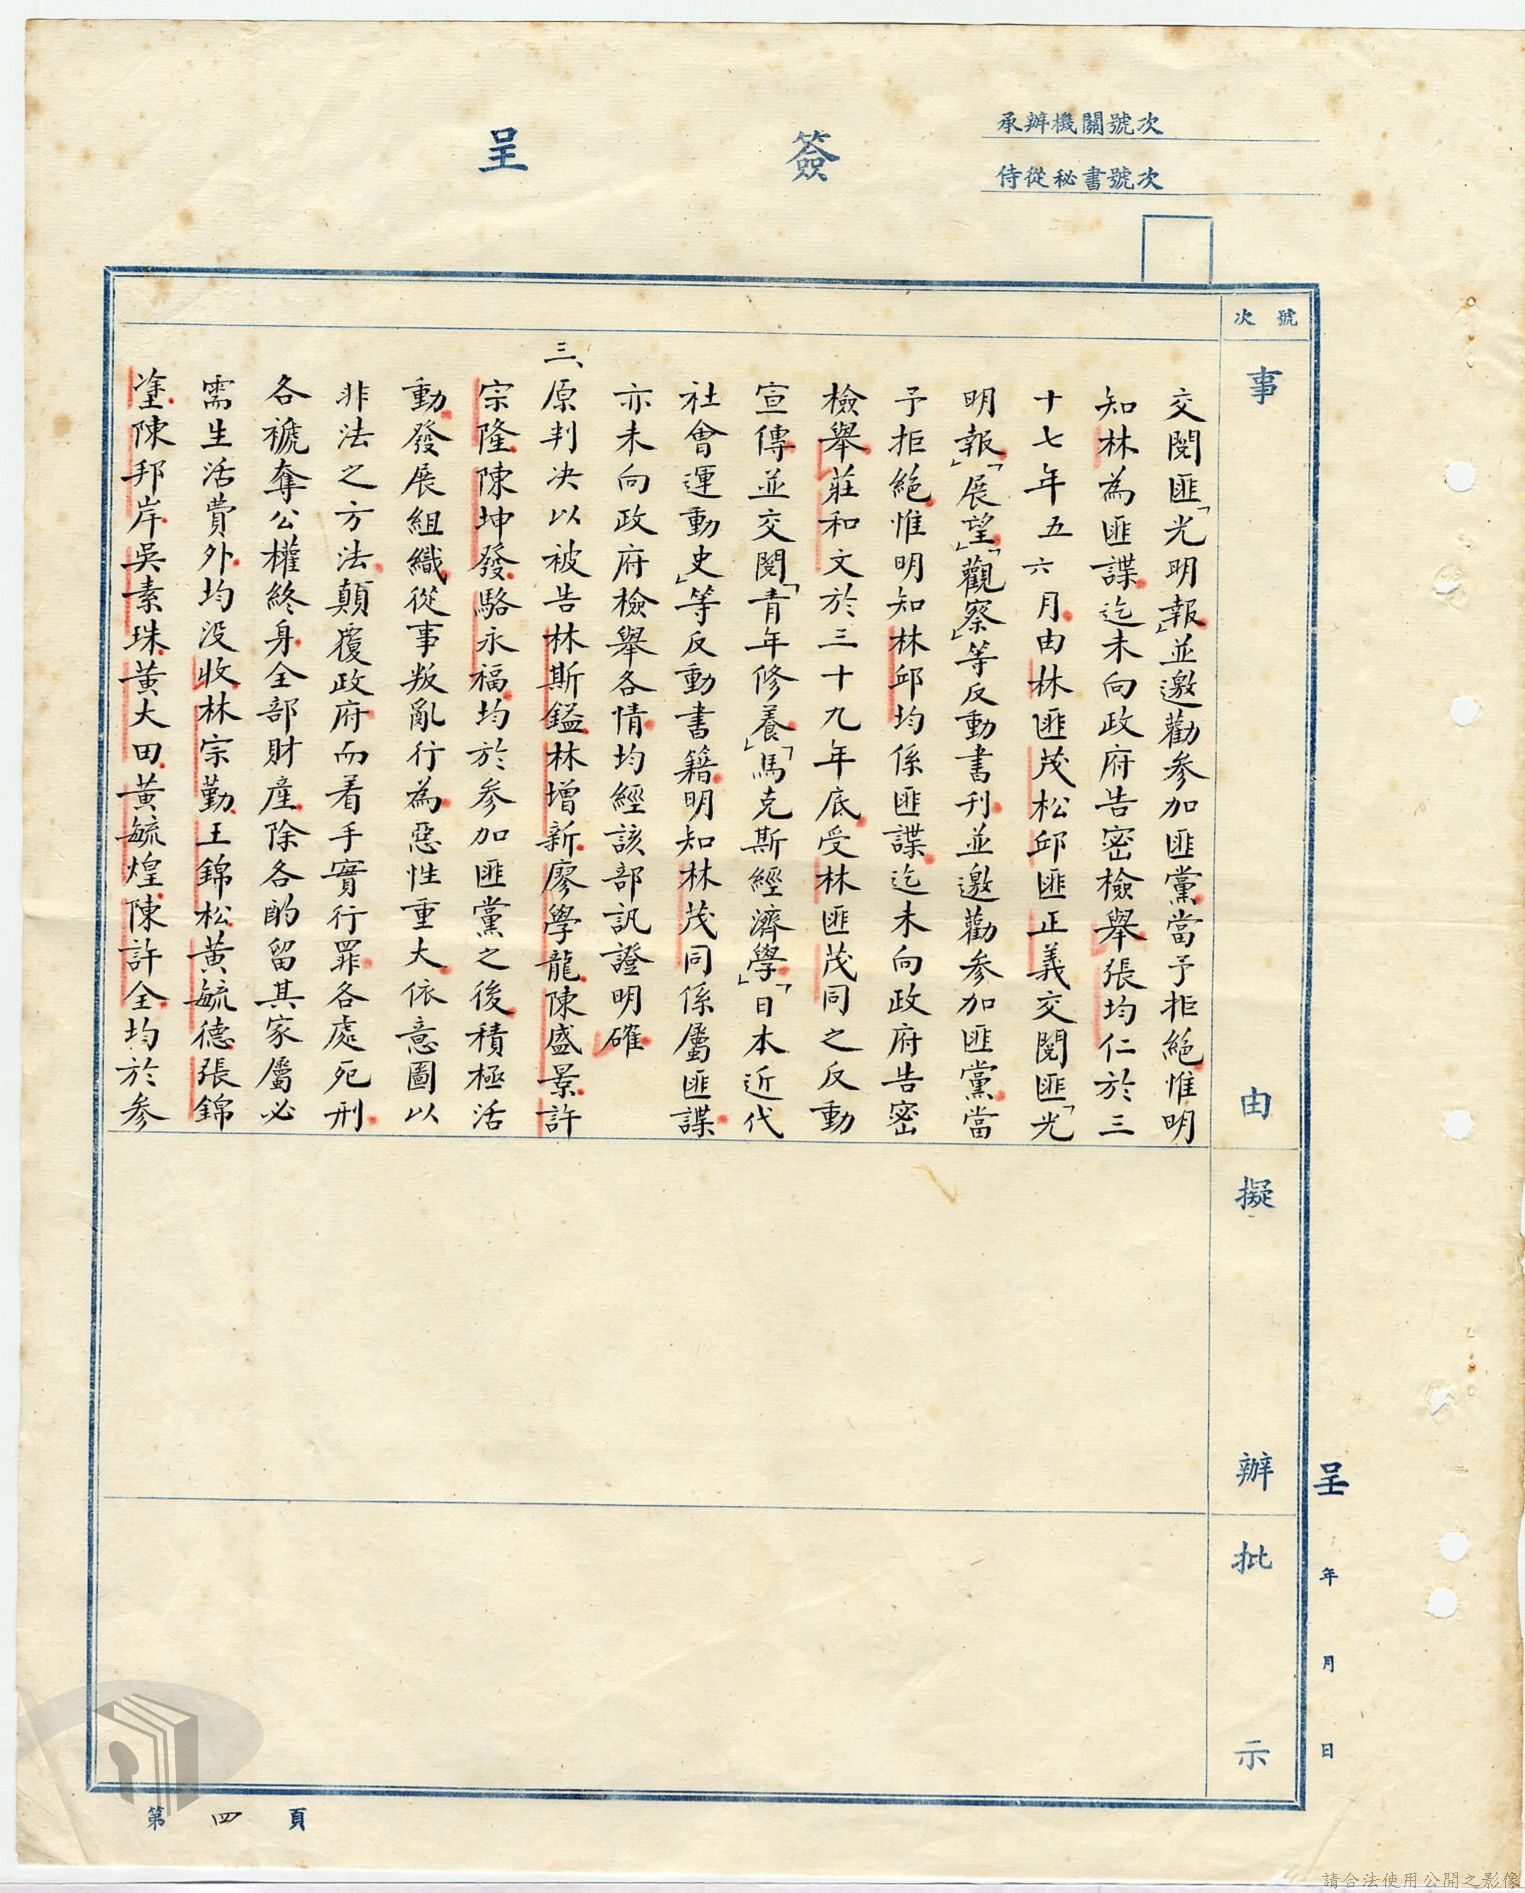 簽呈
承辦機關號次
侍從秘書號次
號次
事由
擬辦
批示
交閱匪「光明報」並邀勸參加匪黨當予拒絕惟明
知林為匪諜迄未向政府告密檢舉張均仁於三
十七年五六月由林匪茂松邱匪正義交閱匪「光
明報」「展望」「觀察」等反動書刊並邀勸參加匪黨當
予拒絕惟明知林邱均係匪諜迄未向政府告密
檢舉莊和文於三十九年底受林匪茂同之反動
宣傳並交閱「青年修養」「馬克斯經濟學」「日本近代
社會運動史」等反動書籍明知林茂同係屬匪諜
亦未向政府檢舉各情均經該部訊證明確
三、原判決以被告林斯鎰林增新廖學龍陳盛景許
宗隆陳坤發駱永福均於參加匪黨之後積極活
動發展組織從事叛亂行為惡性重大依意圖以
非法之方法顛覆政府而着手實行罪各處死刑
各褫奪公權終身全部財產除各酌留其家屬必
需生活費外均没收林宗勤王錦松黃毓德張錦
塗陳邦岸吳素珠黃大田黃毓煌陳許全均於參
呈
年月日
第四頁
請合法使用公開之影像